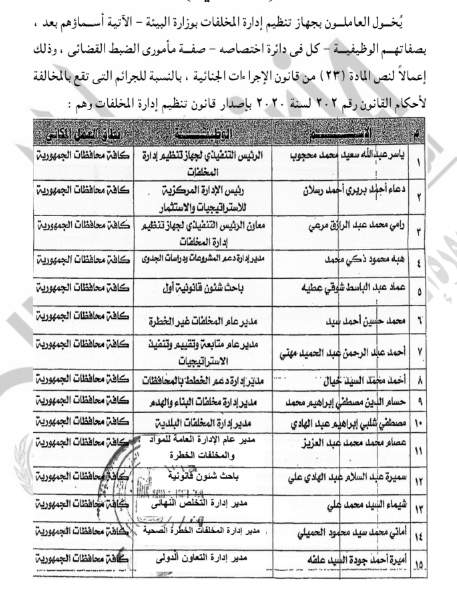 يُخـول العاملـون بجهاز تنظيم إدارة المخلفات بوزارة البيئة – الآتية أسماؤهم بعد ،
بصفاتهـم الوظيفيـة – كل فى دائرة اختصاصه – صفـة مأمورى الضبط القضائى ، وذلك
إعمالاً لنص المادة (٢٣) من قانون الإجراءات الجنائية ، بالنسبة للجرائم التى تقع بالمخالفة
لأحكام القانون رقم ٢٠٢ لسنة ٢٠٢٠ بإصدار قانون تنظيم إدارة المخلفات وهم :
م الاســـم الوظيفـــة نطاق العمل المكاني
١ ياسر عبدالله سعيد محمد محجوب الرئيس التنفيذي لجهاز تنظيم إدارة المخلفات كافة محافظات الجمهورية
٢ دعاء أحمد بريري أحمد رسلان رئيس الإدارة المركزية للاستراتيجيات والاستثمار كافة محافظات الجمهورية
٣ رامي محمد عبد الرازق مرعي معاون الرئيس التنفيذي لجهاز تنظيم إدارة المخلفات كافة محافظات الجمهورية
٤ هبه محمود ذكي محمد مدير إدارة دعم المشروعات ودراسات الجدوى كافة محافظات الجمهورية
٥ عماد عبد الباسط شوقي عطيه باحث شئون قانونية أول كافة محافظات الجمهورية
٦ محمد حسين أحمد سيد مدير عام المخلفات غير الخطرة كافة محافظات الجمهورية
٧ أحمد عبد الرحمن عبد الحميد مهني مدير عام متابعة وتقييم وتنفيذ الاستراتيجيات كافة محافظات الجمهورية
٨ أحمد محمد السيد خيال مدير إدارة دعم الخطط بالمحافظات كافة محافظات الجمهورية
٩ حسام الدين مصطفي إبراهيم محمد مدير إدارة مخلفات البناء والهدم كافة محافظات الجمهورية
١٠ مصطفي شلبي إبراهيم عبد الهادي مدير إدارة مخلفات البلدية كافة محافظات الجمهورية
١١ عصام محمد محمد عبد العزيز مدير عام الإدارة العامة للمواد والمخلفات الخطرة كافة محافظات الجمهورية
١٢ سميرة عبد السلام عبد الهادي علي باحث شئون قانونية كافة محافظات الجمهورية
١٣ شيماء السيد محمد علي مدير إدارة التخلص النهائى كافة محافظات الجمهورية
١٤ أماني محمد سيد محمود الحميلي مدير إدارة المخلفات الخطرة الصحية كافة محافظات الجمهورية
١٥ أميرة أحمد جودة السيد علفه مدير إدارة التعاون الدولى كافة محافظات الجمهورية